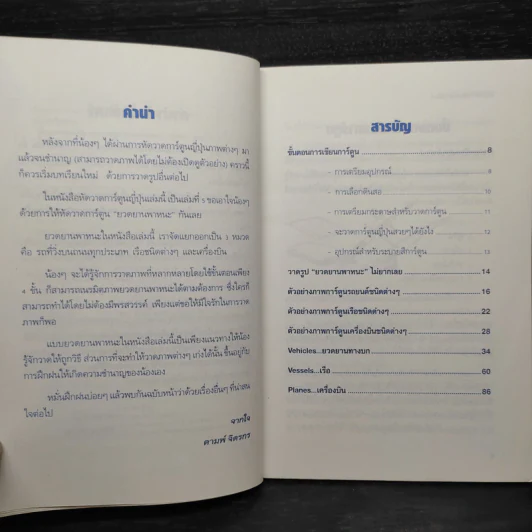 คำนำ
หลังจากที่น้องๆ ได้ผ่านการหัดวาดการ์ตูนญี่ปุ่นภาพต่างๆ มา
แล้วจนชำนาญ (สามารถวาดภาพได้โดยไม่ต้องเปิดดูตัวอย่าง) คราวนี้
ก็ควรเริ่มบทเรียนใหม่ ด้วยการวาดรูปอื่นต่อไป
ในหนังสือหัดวาดการ์ตูนญี่ปุ่นเล่มนี้ เป็นเล่มที่ 5 ขอเอาใจน้องๆ
ด้วยการให้หัดวาดการ์ตูน "ยวดยานพาหนะ" กันเลย
ยวดยานพาหนะในหนังสือเล่มนี้ เราจัดแยกออกเป็น 3 หมวด
คือ รถที่วิ่งบนถนนทุกประเภท เรือชนิดต่างๆ และเครื่องบิน
น้องๆ จะได้รู้จักการวาดภาพที่หลากหลายโดยใช้ขั้นตอนเพียง
4 ขั้น ก็สามารถเนรมิตภาพยวดยานพาหนะได้ตามต้องการ ซึ่งใครก็
สามารถทำได้โดยไม่ต้องมีพรสวรรค์ เพียงแต่ขอให้มีใจรักในการวาด
ภาพก็พอ
แบบยวดยานพาหนะในหนังสือเล่มนี้เป็นเพียงแนวทางให้น้อง
รู้จักวาดให้ถูกวิธี ส่วนการที่จะทำให้วาดภาพต่างๆ เก่งได้นั้น ขึ้นอยู่กับ
การฝึกฝนให้เกิดความชำนาญของน้องเอง
หมั่นฝึกฝนบ่อยๆ แล้วพบกันฉบับหน้าว่าด้วยเรื่องอื่นๆ ที่น่าสน
ใจต่อไป
จากใจ
ดามพ์ จิตวกร
สารบัญ
ขั้นตอนการเขียนการ์ตูน 8
- การเตรียมอุปกรณ์ 9
- การเลือกดินสอ 10
- การเตรียมกระดาษสำหรับวาดการ์ตูน 11
- จะวาดการ์ตูนญี่ปุ่นสวยๆได้ยังไง 12
- อุปกรณ์สำหรับระบายสีการ์ตูน 13
วาดรูป "ยวดยานพาหนะ" ไม่ยากเลย 14
ตัวอย่างภาพการ์ตูนรถยนต์ชนิดต่างๆ 16
ตัวอย่างภาพการ์ตูนเรือชนิดต่างๆ 22
ตัวอย่างภาพการ์ตูนเครื่องบินชนิดต่างๆ 28
Vehicles...ยวดยานทางบก 34
Vessels...เรือ 60
Planes...เครื่องบิน 86